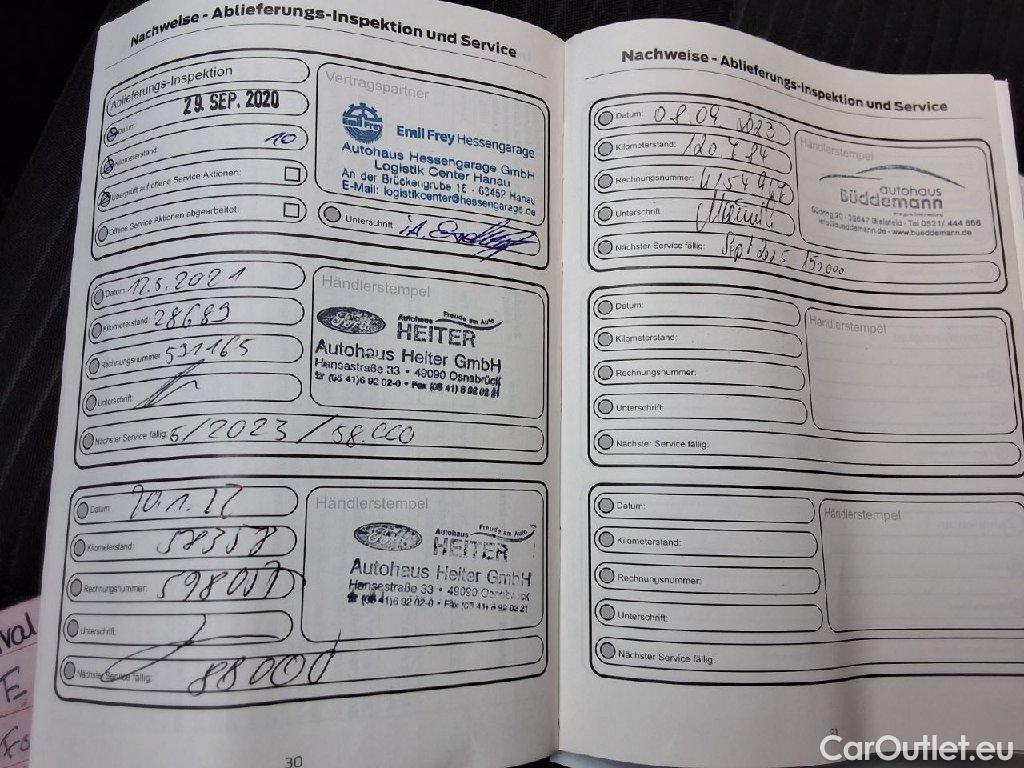 Nachweise - Ablieferungs-Inspektion und Service
Ablieferungs-Inspektion
29. SEP. 2020
Datum:
Kilometerstand: 10
Überprüft auf offene Service Aktionen:
Offene Service Aktionen abgearbeitet:
Vertragspartner
Emil Frey
Emil Frey Hessengarage
Autohaus Hessengarage GmbH
Logistik Center Hanau
An der Brückengrube 16 - 63452 Hanau
E-Mail: logistikcenter@hessengarage.de
Unterschrift i.A.
Datum: 12.5.2021
Kilometerstand: 28689
Rechnungsnummer 531165
Unterschrift:
Nächster Service fällig: 6/2023/58.000
Händlerstempel
Ford
Autohaus Freude am Auto
HEITER
Autohaus Heiter GmbH
Hansastraße 33 • 49090 Osnabrück
(05 41) 6 92 02-0 • Fax (05 41) 6 92 02 21
Datum: 20.1.22
Kilometerstand: 58358
Rechnungsnummer: 598057
Unterschrift:
Nächster Service fällig: 88000
Händlerstempel
Ford
Autohaus Freude am Auto
HEITER
Autohaus Heiter GmbH
Hansastraße 33 • 49090 Osnabrück
(05 41) 6 92 02-0 • Fax (05 41) 6 92 02 21
30
Nachweise - Ablieferungs-Inspektion und Service
Datum: 08.09.2023
Kilometerstand: 120724
Rechnungsnummer:
Unterschrift
Nächster Service fällig: Sept 2025 /
Händlerstempel
autohaus
Büddemann
Bielefeld - Tel 0521/ 444 666
info@bueddemann.de - www.bueddemann.de
Datum:
Kilometerstand:
Rechnungsnummer:
Unterschrift:
Nächster Service fällig:
Händlerstempel
Datum:
Kilometerstand:
Rechnungsnummer:
Unterschrift:
Nächster Service fällig
Händlerstempel
31
val
CarOutlet.eu